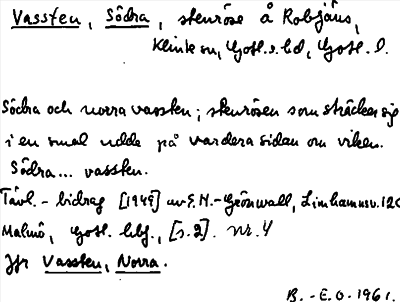 Vassten, Södra, stenröse å Robjäns,
Klinte sn, Gotl. s. hd, Gotl. l.
Södra och norra vassten; stenrösen som sträcker sig
i en smal udde på vardera sidan om viken.
Södra... vassten.
Tävl.-bidrag [1949] av E. N.-Grönwall, Limhamnsv. 12C
Malmö, Gotl. hbf., [s. 2]. nr. 4
Jfr Vassten, Norra.
B.-E.O. 1961.